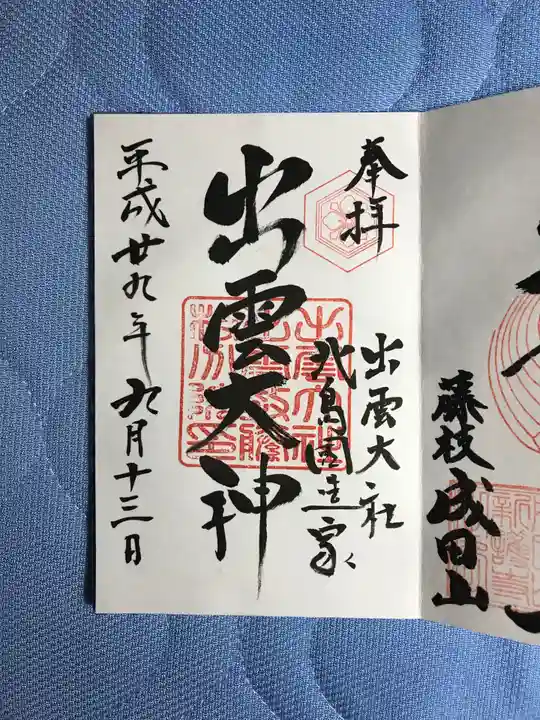 奉拝
出雲大社
北島國造家
出雲大神
平成廿九年九月十三日
藤枝成田山